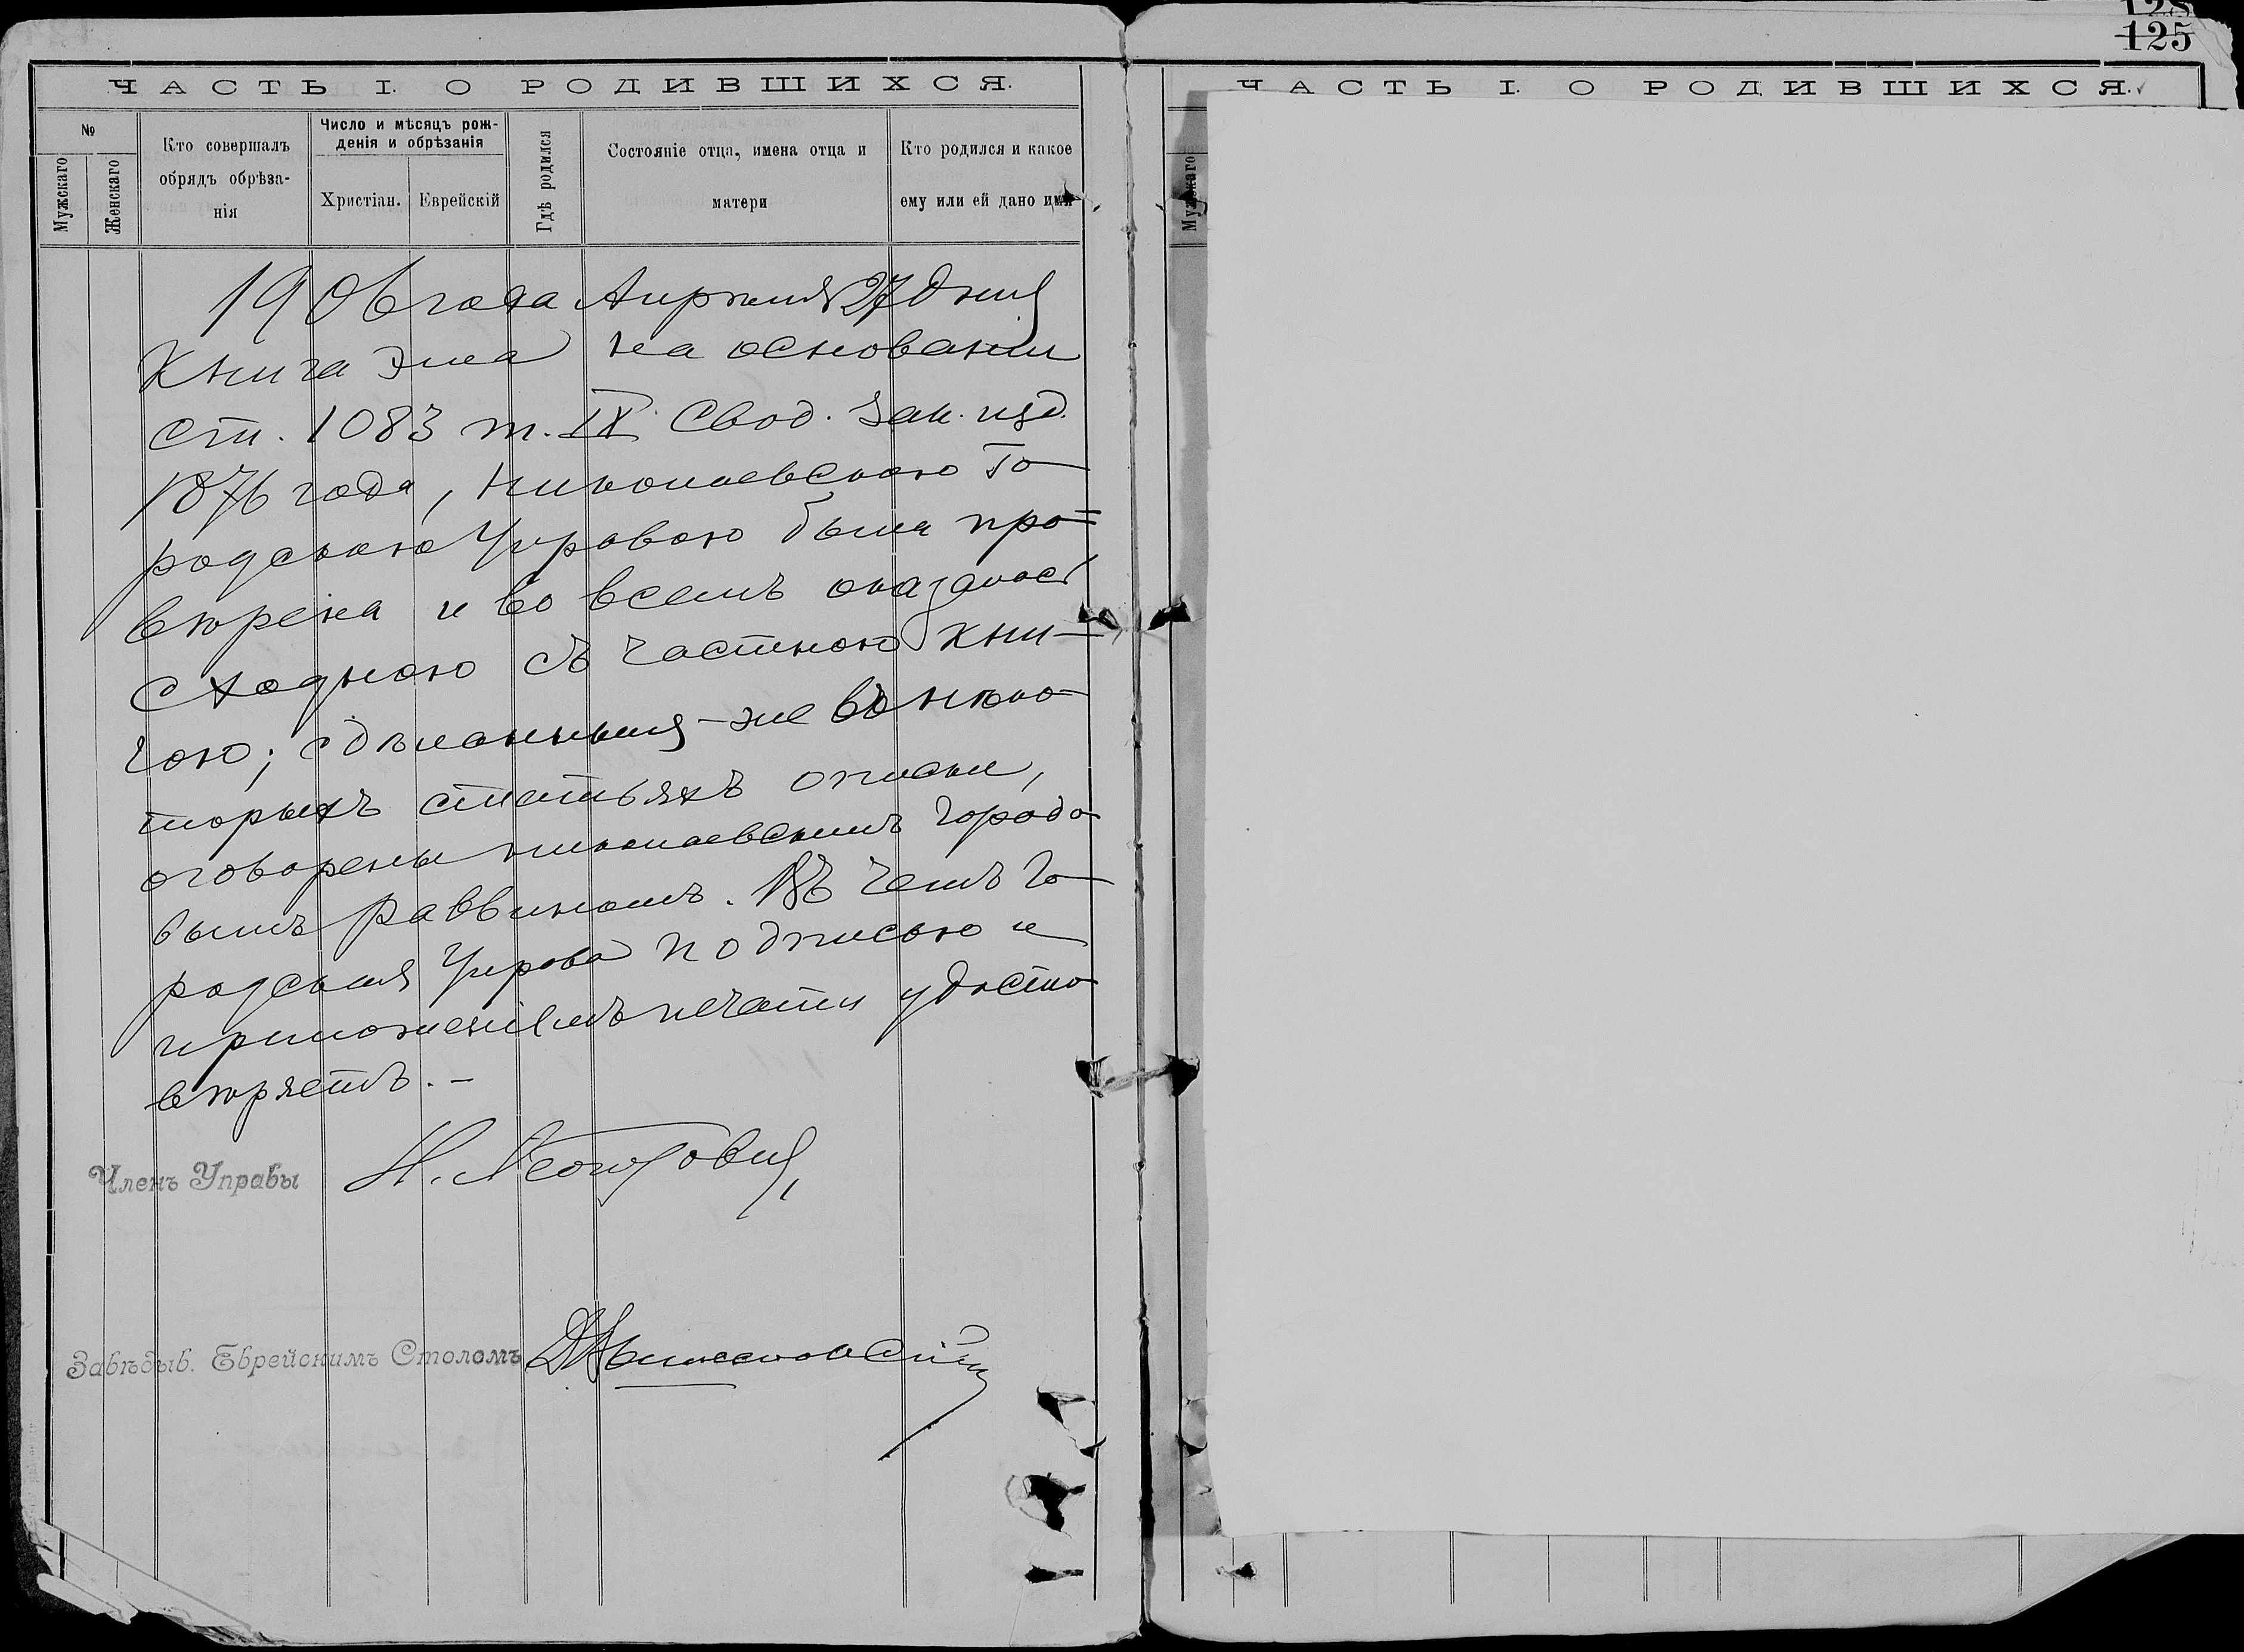 128
125
ЧАСТЬ I. О РОДИВШИХСЯ.
№
Мужскаго
Женскаго
Кто совершалъ
обрядъ обрѣза-
нія
Число и мѣсяцъ рож-
денія и обрѣзанія
Христіан.
Еврейскій
Гдѣ родился
Состояніе отца, имена отца и
матери
Кто родился и какое
ему или ей дано имя
1906 года Апрѣля 27 дня
Книга эта на основаніи
ст. 1083 т. IX Свод. Зак. изд.
1876 года, Николаевскою Го-
родскою Управою была про=
вѣрена и во всемъ оказалось
сходною съ частною кни-
гою; сдѣланныя-же въ нѣко-
торыхъ статьяхъ описки,
оговорены николаевскимъ городо-
вымъ раввиномъ. Въ чемъ Го-
родская Управа подписью и
приложеніемъ печати удосто-
вѣряетъ.-
Членъ Управы
Н.
Завѣдыв. Еврейскимъ Столомъ
ЧАСТЬ I. О РОДИВШИХСЯ.
Мужскаго